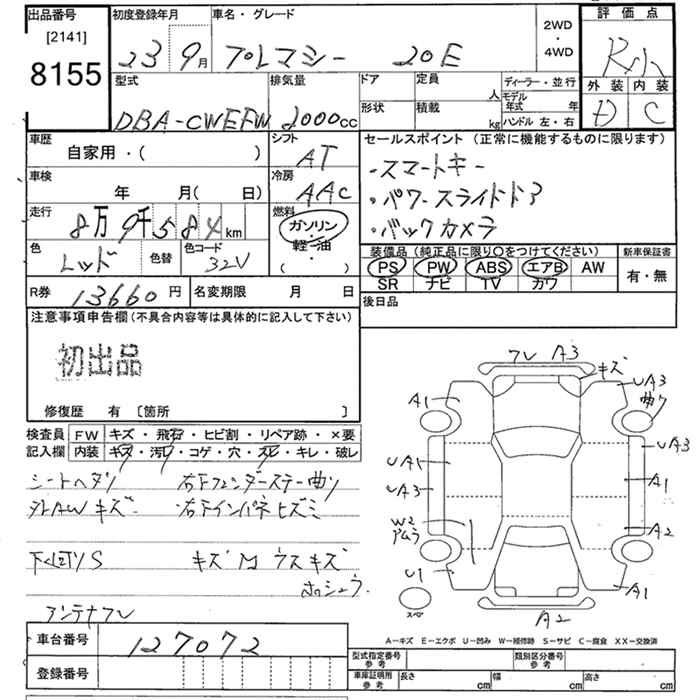 出品番号 初度登録年月 車名・グレード 2WD・4WD 評価点
[2141]
8155 23 9月 プレマシー 20E R小
型式 排気量 ドア 定員 人 ディーラー・並行 外装 内装
DBA-CWEFW 2000cc 形状 積載 kg モデル年式 年 D C
ハンドル 左・右
車歴 シフト セールスポイント(正常に機能するものに限ります)
自家用・( ) AT ・スマートキー
車検 冷房 ・パワースライドドア
年 月( 日) AAC ・バックカメラ
走行 8万9千584km 燃料 ガソリン・軽油・( )
色 レッド 色替 色コード 32V
装備品(純正品に限り○をつけてください) 新車保証書
PS PW ABS エアB AW 有・無
SR ナビ TV カワ
R券 13660円 名変期限 月 日 後日品
注意事項申告欄(不具合内容等は具体的に記入して下さい)
初出品
修復歴 有 [箇所 ]
検査員 FW キズ・飛石・ヒビ割・リペア跡・×要
記入欄 内装 キズ・汚レ・コゲ・穴・スレ・キレ・破レ
シートヘタリ 右Fフェンダーステー曲リ
外AWキズ 右Fインパネヒズミ
下回りS キズM ウスキズ
アンテナワレ
ワレ A3
キズ
UA3
曲り
A1
UA3
UA1
A1
UA3
A2
W2
U1
A1
スペア
A2
A-キズ E-エクボ U-凹み W-補修跡 S-サビ C-腐食 XX-交換済
車台番号 127072
登録番号
型式指定番号 参考 類別区分番号 参考
車庫証明用 参考 長さ cm 幅 cm 高さ cm